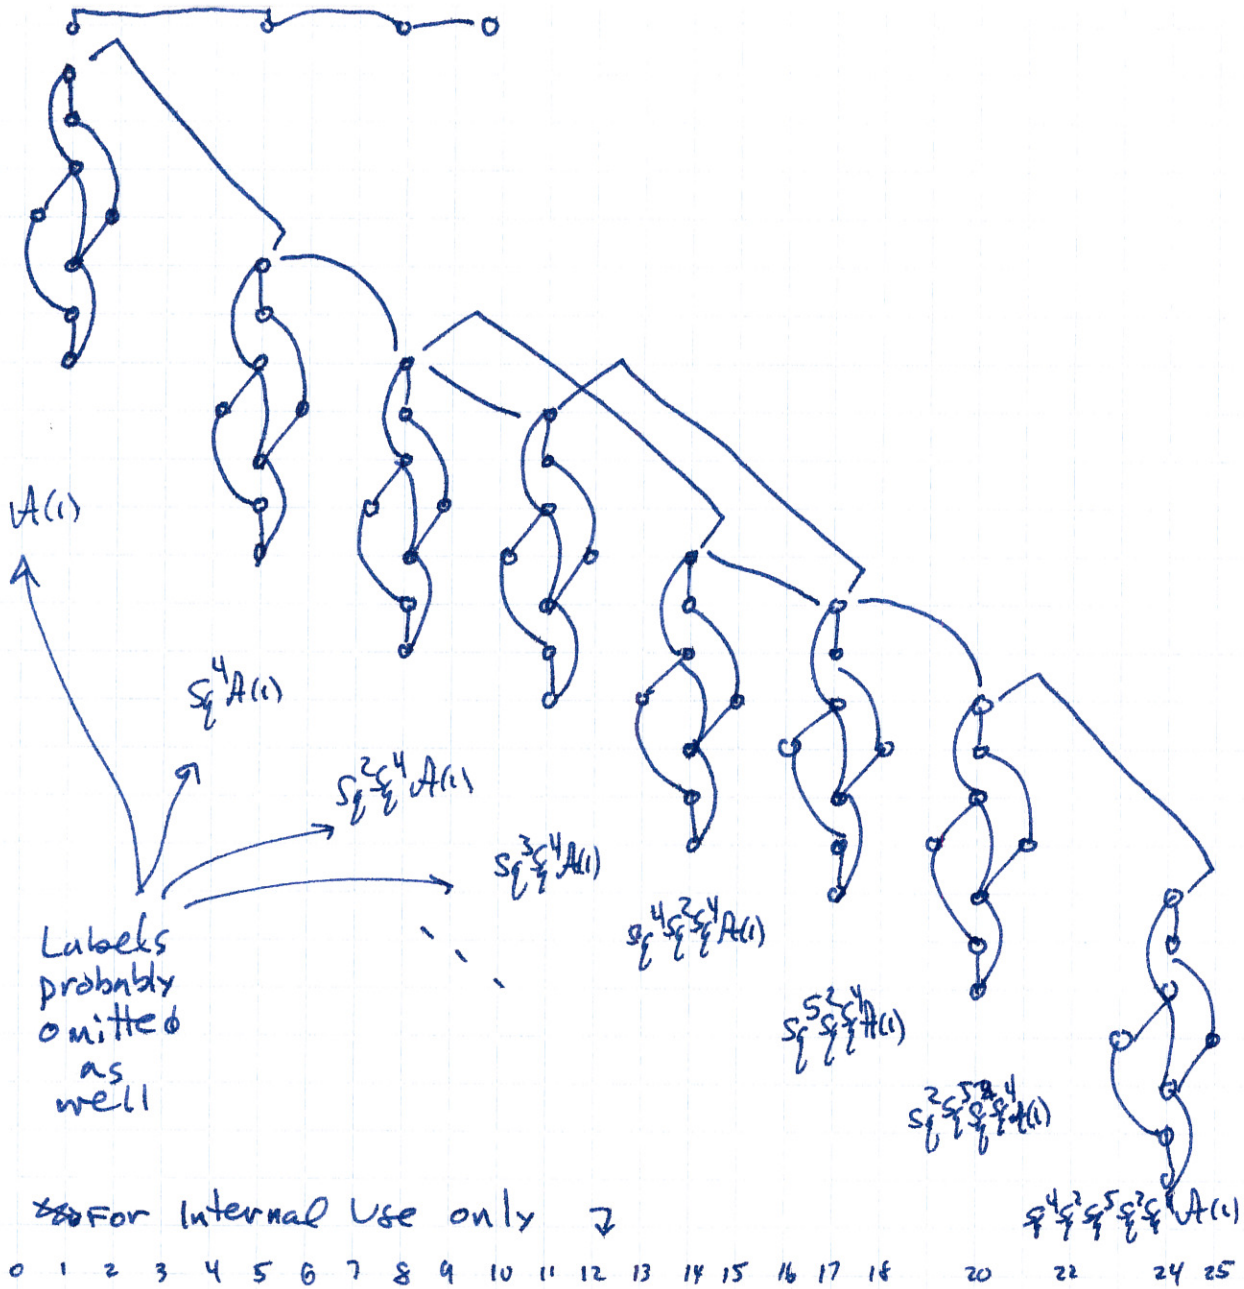 A(1)
Sq^4 A(1)
Sq^2 Sq^4 A(1)
Sq^3 Sq^4 A(1)
Sq^4 Sq^2 Sq^4 A(1)
Sq^5 Sq^2 Sq^4 A(1)
Sq^2 Sq^5 Sq^2 Sq^4 A(1)
Sq^4 Sq^2 Sq^5 Sq^2 Sq^4 A(1)
Labels
probably
omitted
as
well
For Internal Use only
0 1 2 3 4 5 6 7 8 9 10 11 12 13 14 15 16 17 18 20 22 24 25